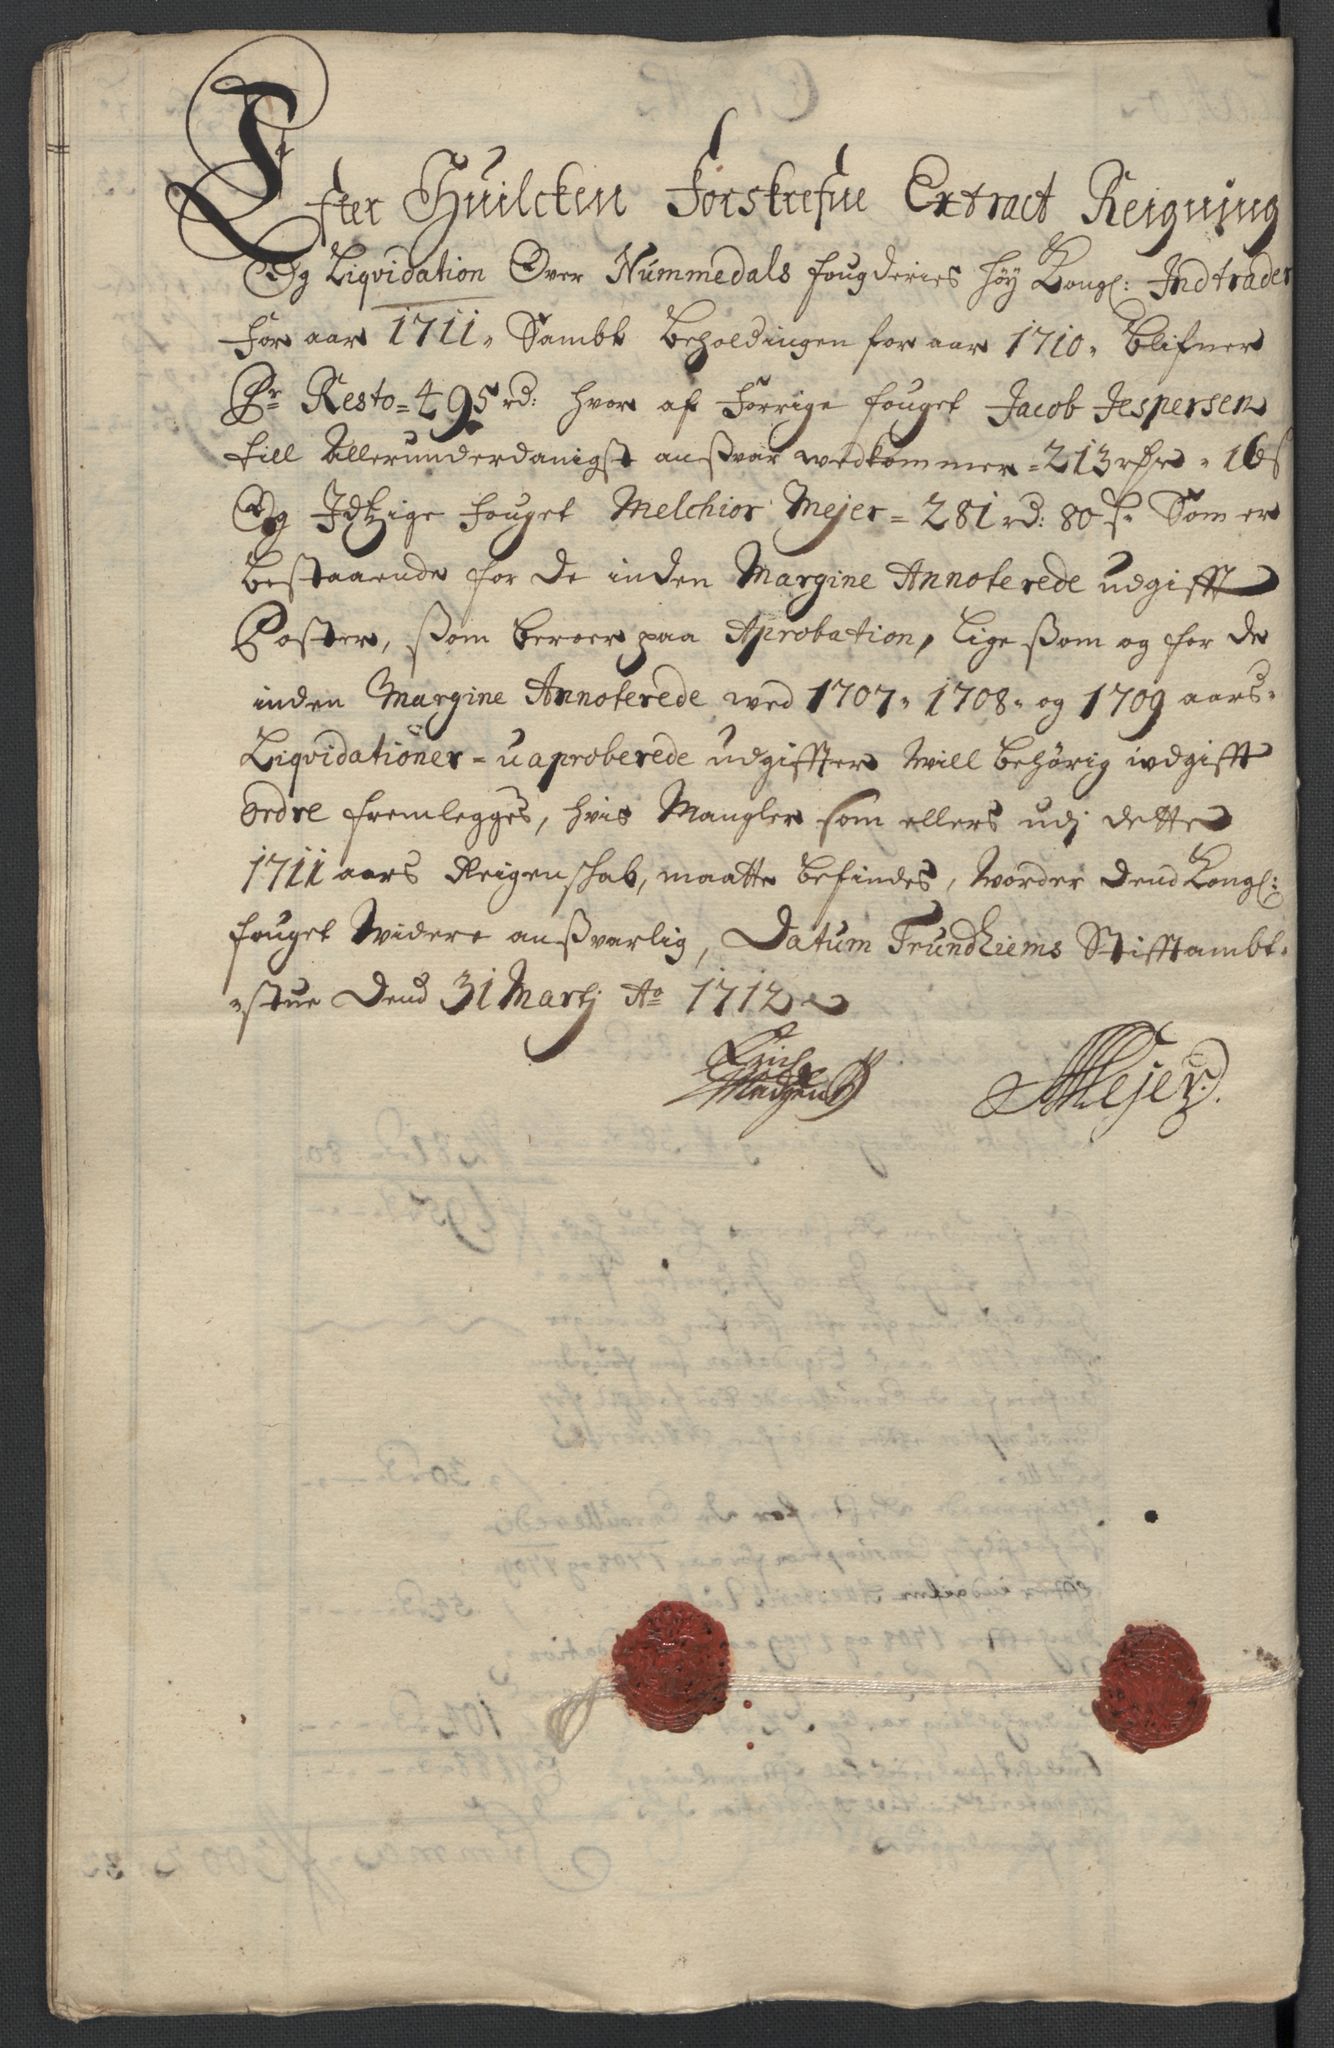 Efter Huilcken Forskrefne Extract Reigning
Og Liqvidation Over Nummedals fougderies høy Kongl: Indtrader
For aar 1711, Sambt beholdingen for aar 1710, blifver
Pr Resto = 495 rd: hvor af Forrige fouget Jacob Jespersen
till Allerunderdanigst anßvar wedkommer = 213 rdr - 16 s
Og Jdtzige fouget Melchior Mejer = 281 rd: 80 s. Som er
bestaaende for de inden Margine Annoterede udgifft
Poster, ßom beroer paa Aprobation, lige ßom og for de
inden Margine Annoterede wed 1707, 1708, og 1709 aars-
Liqvidationer = uaproberede udgiffter Will behørig udgifft
ordre fremlegges, hvis Mangler som ellers udj dette
1711 aars Reigenschab, maatte befindes, Worder Dend Kongl:
fouget Widere anßvarlig, Datum Trundhiems Stifftambt-
stue Dend 31 Martj Ao 1712
Erich Madsen MMejer